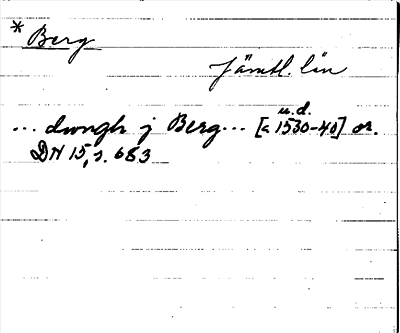 * Berg
Jämtl. län
u.d.
... dwngh j Berg... [c 1530-40] or.
DN 15, s. 683